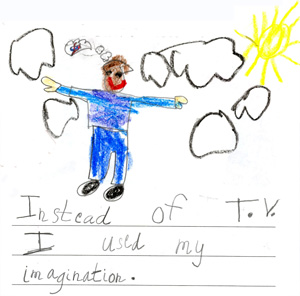 Instead of T.V.
I used my
imagination.